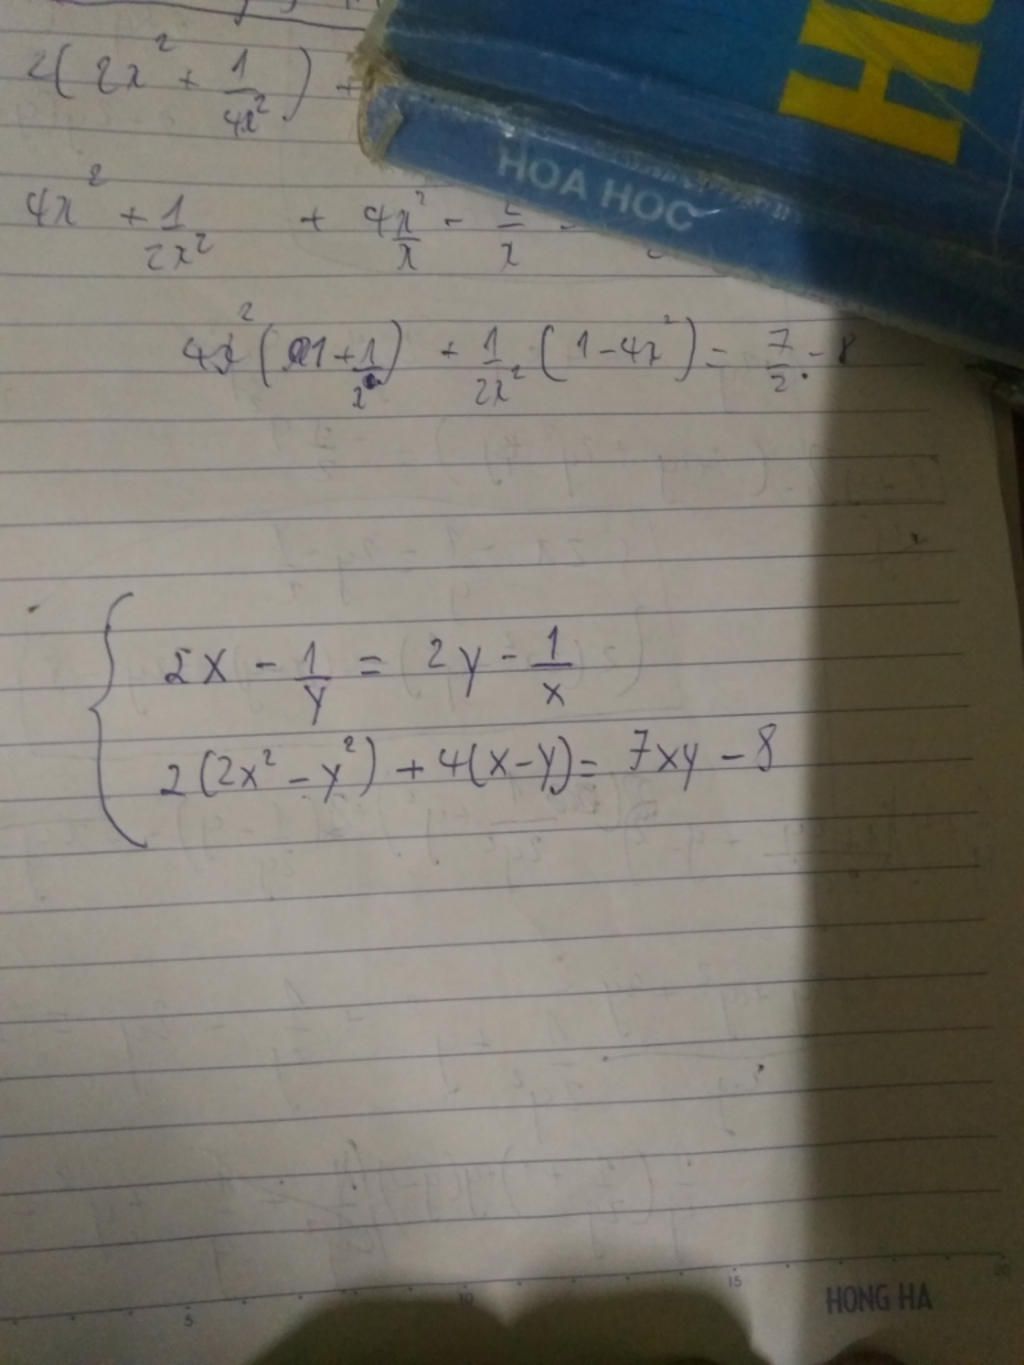 2(2x² + 1/4x²) +
HO
HOA HOC
4x² + 1/2x² + 4x²/x - 2/x -
4x²(1 + 1/x) + 1/2x² (1 - 4x²) = 7/2 - 8
2x - 1/y = 2y - 1/x
2(2x² - y²) + 4(x-y) = 7xy - 8
5 10 15 20
HONG HA